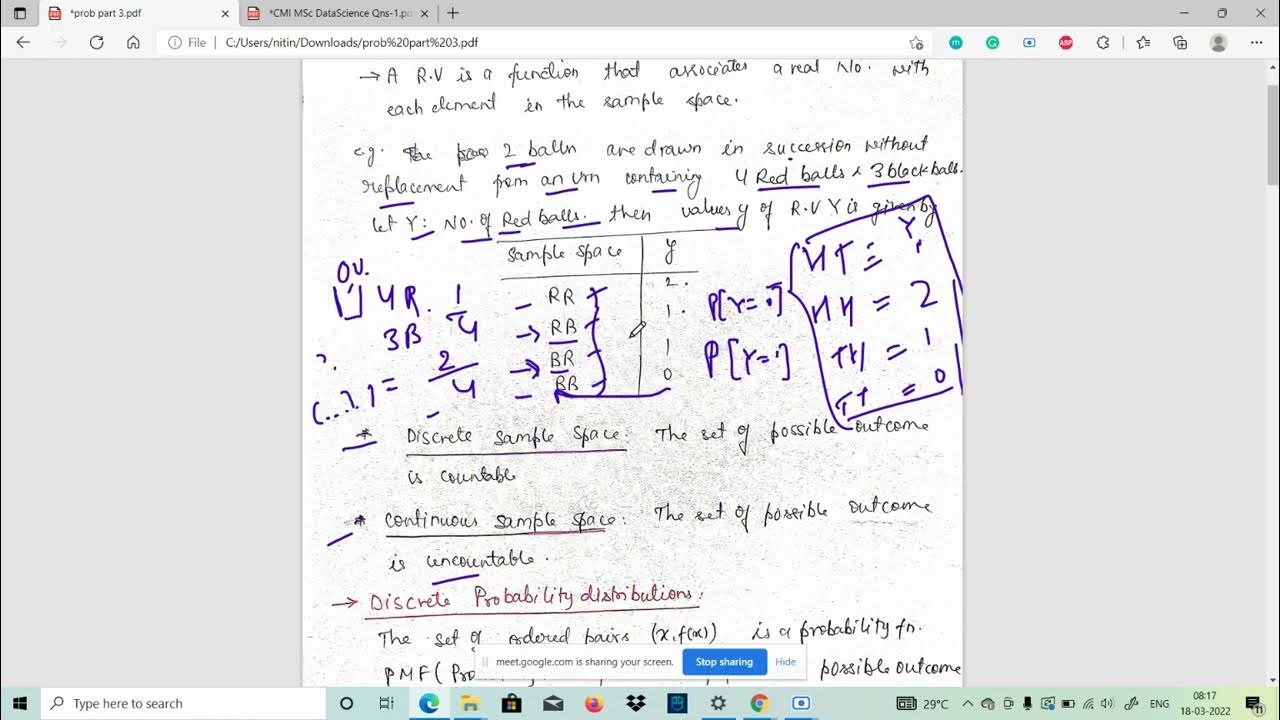 *prob part 3.pdf
*CMI MSc DataScience Qns-1.pd
File
C:/Users/nitin/Downloads/prob%20part%203.pdf
→ A R.V is a function that associates a real No. with
each element in the sample space.
e.g. 2 balls are drawn in succession without
replacement from an urn containing 4 Red balls & 3 black balls.
let Y: No. of Red balls. then values y of R.V Y is given by
Sample space y
RR 2
RB 1
BR 1
BB 0
4R. 1/4
3B
= 2/4
P[Y=
P[Y=1]
HT = Y
HH = 2
TH = 1
TT = 0
* Discrete Sample Space: The set of possible outcome
is countable
* Continuous sample space: The set of possible outcome
is uncountable.
→ Discrete Probability distributions:
The set of ordered pairs (x, f(x)) is a probability fn.
PMF( possible outcome
meet.google.com is sharing your screen.
Stop sharing
Hide
Type here to search
29°C
ENG
08:17
18-03-2022